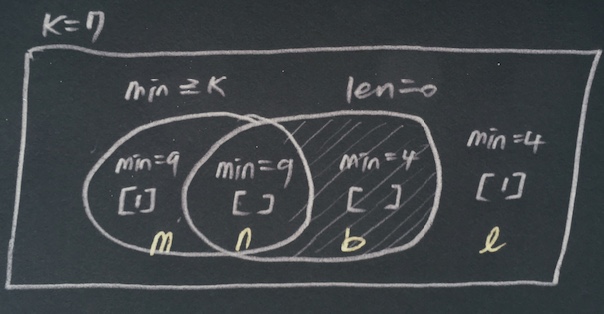 K=7
min ≥ K
len=0
min=9
[1]
m
min=9
[ ]
n
min=4
[ ]
b
min=4
[1]
l